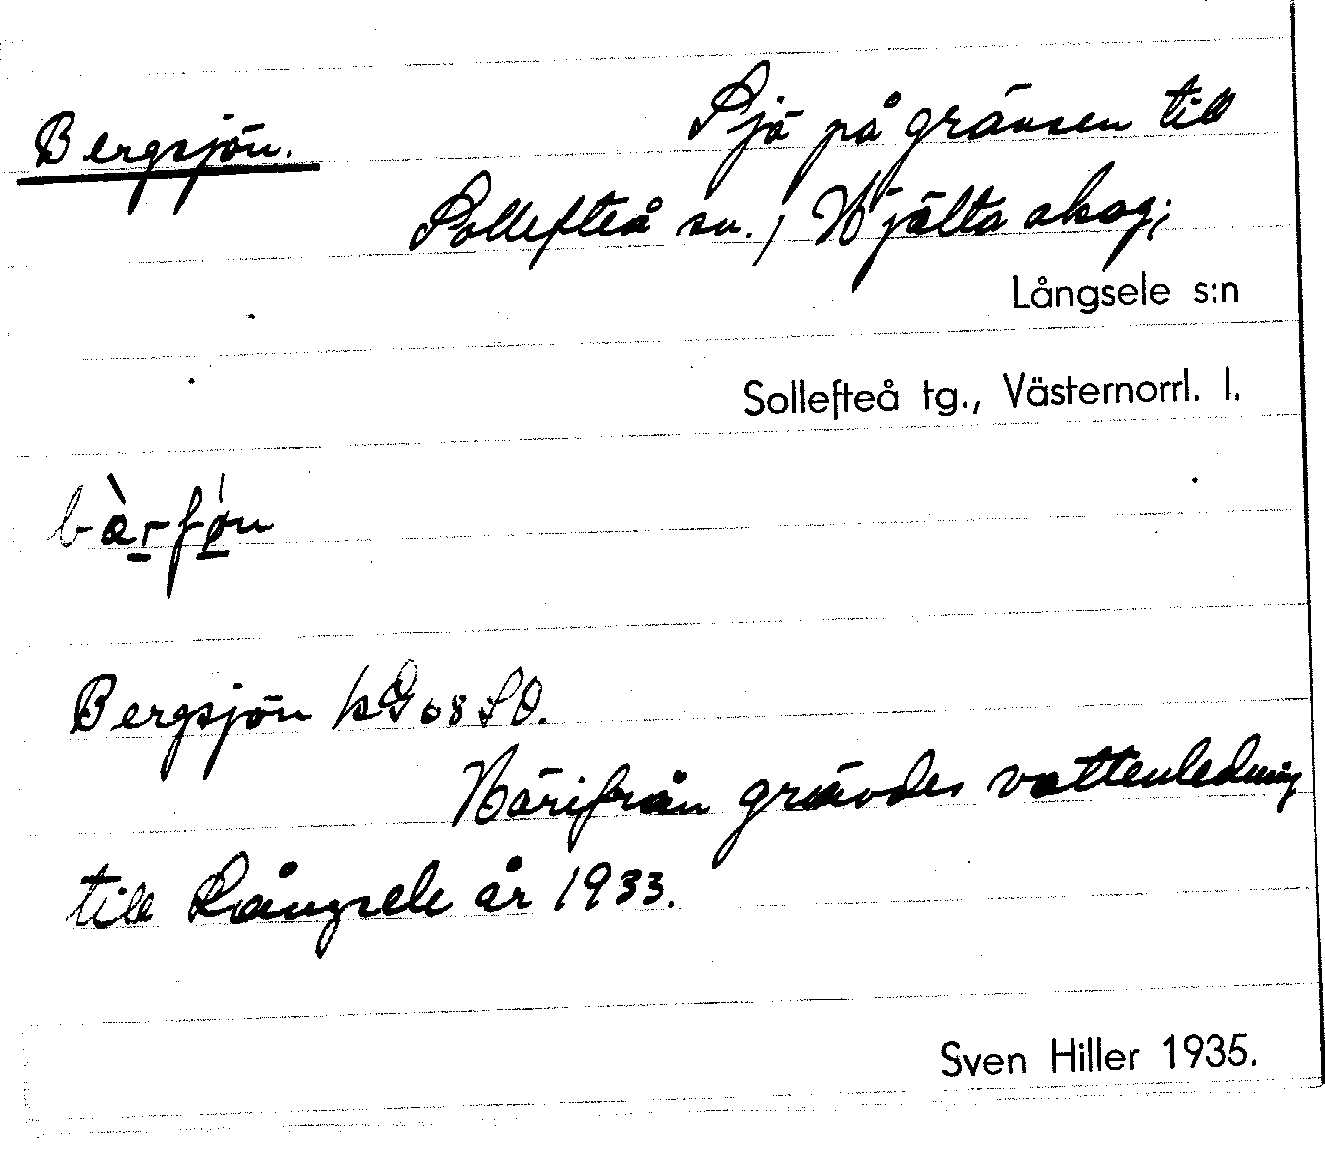 Bergsjön. Sjö på gränsen till
Sollefteå sn., Hjälta skog;
Långsele s:n
Sollefteå tg., Västernorrl. l.
Bergsjön kG 68 SO.
Härifrån grävdes vattenledning
till Långsele år 1933.
Sven Hiller 1935.